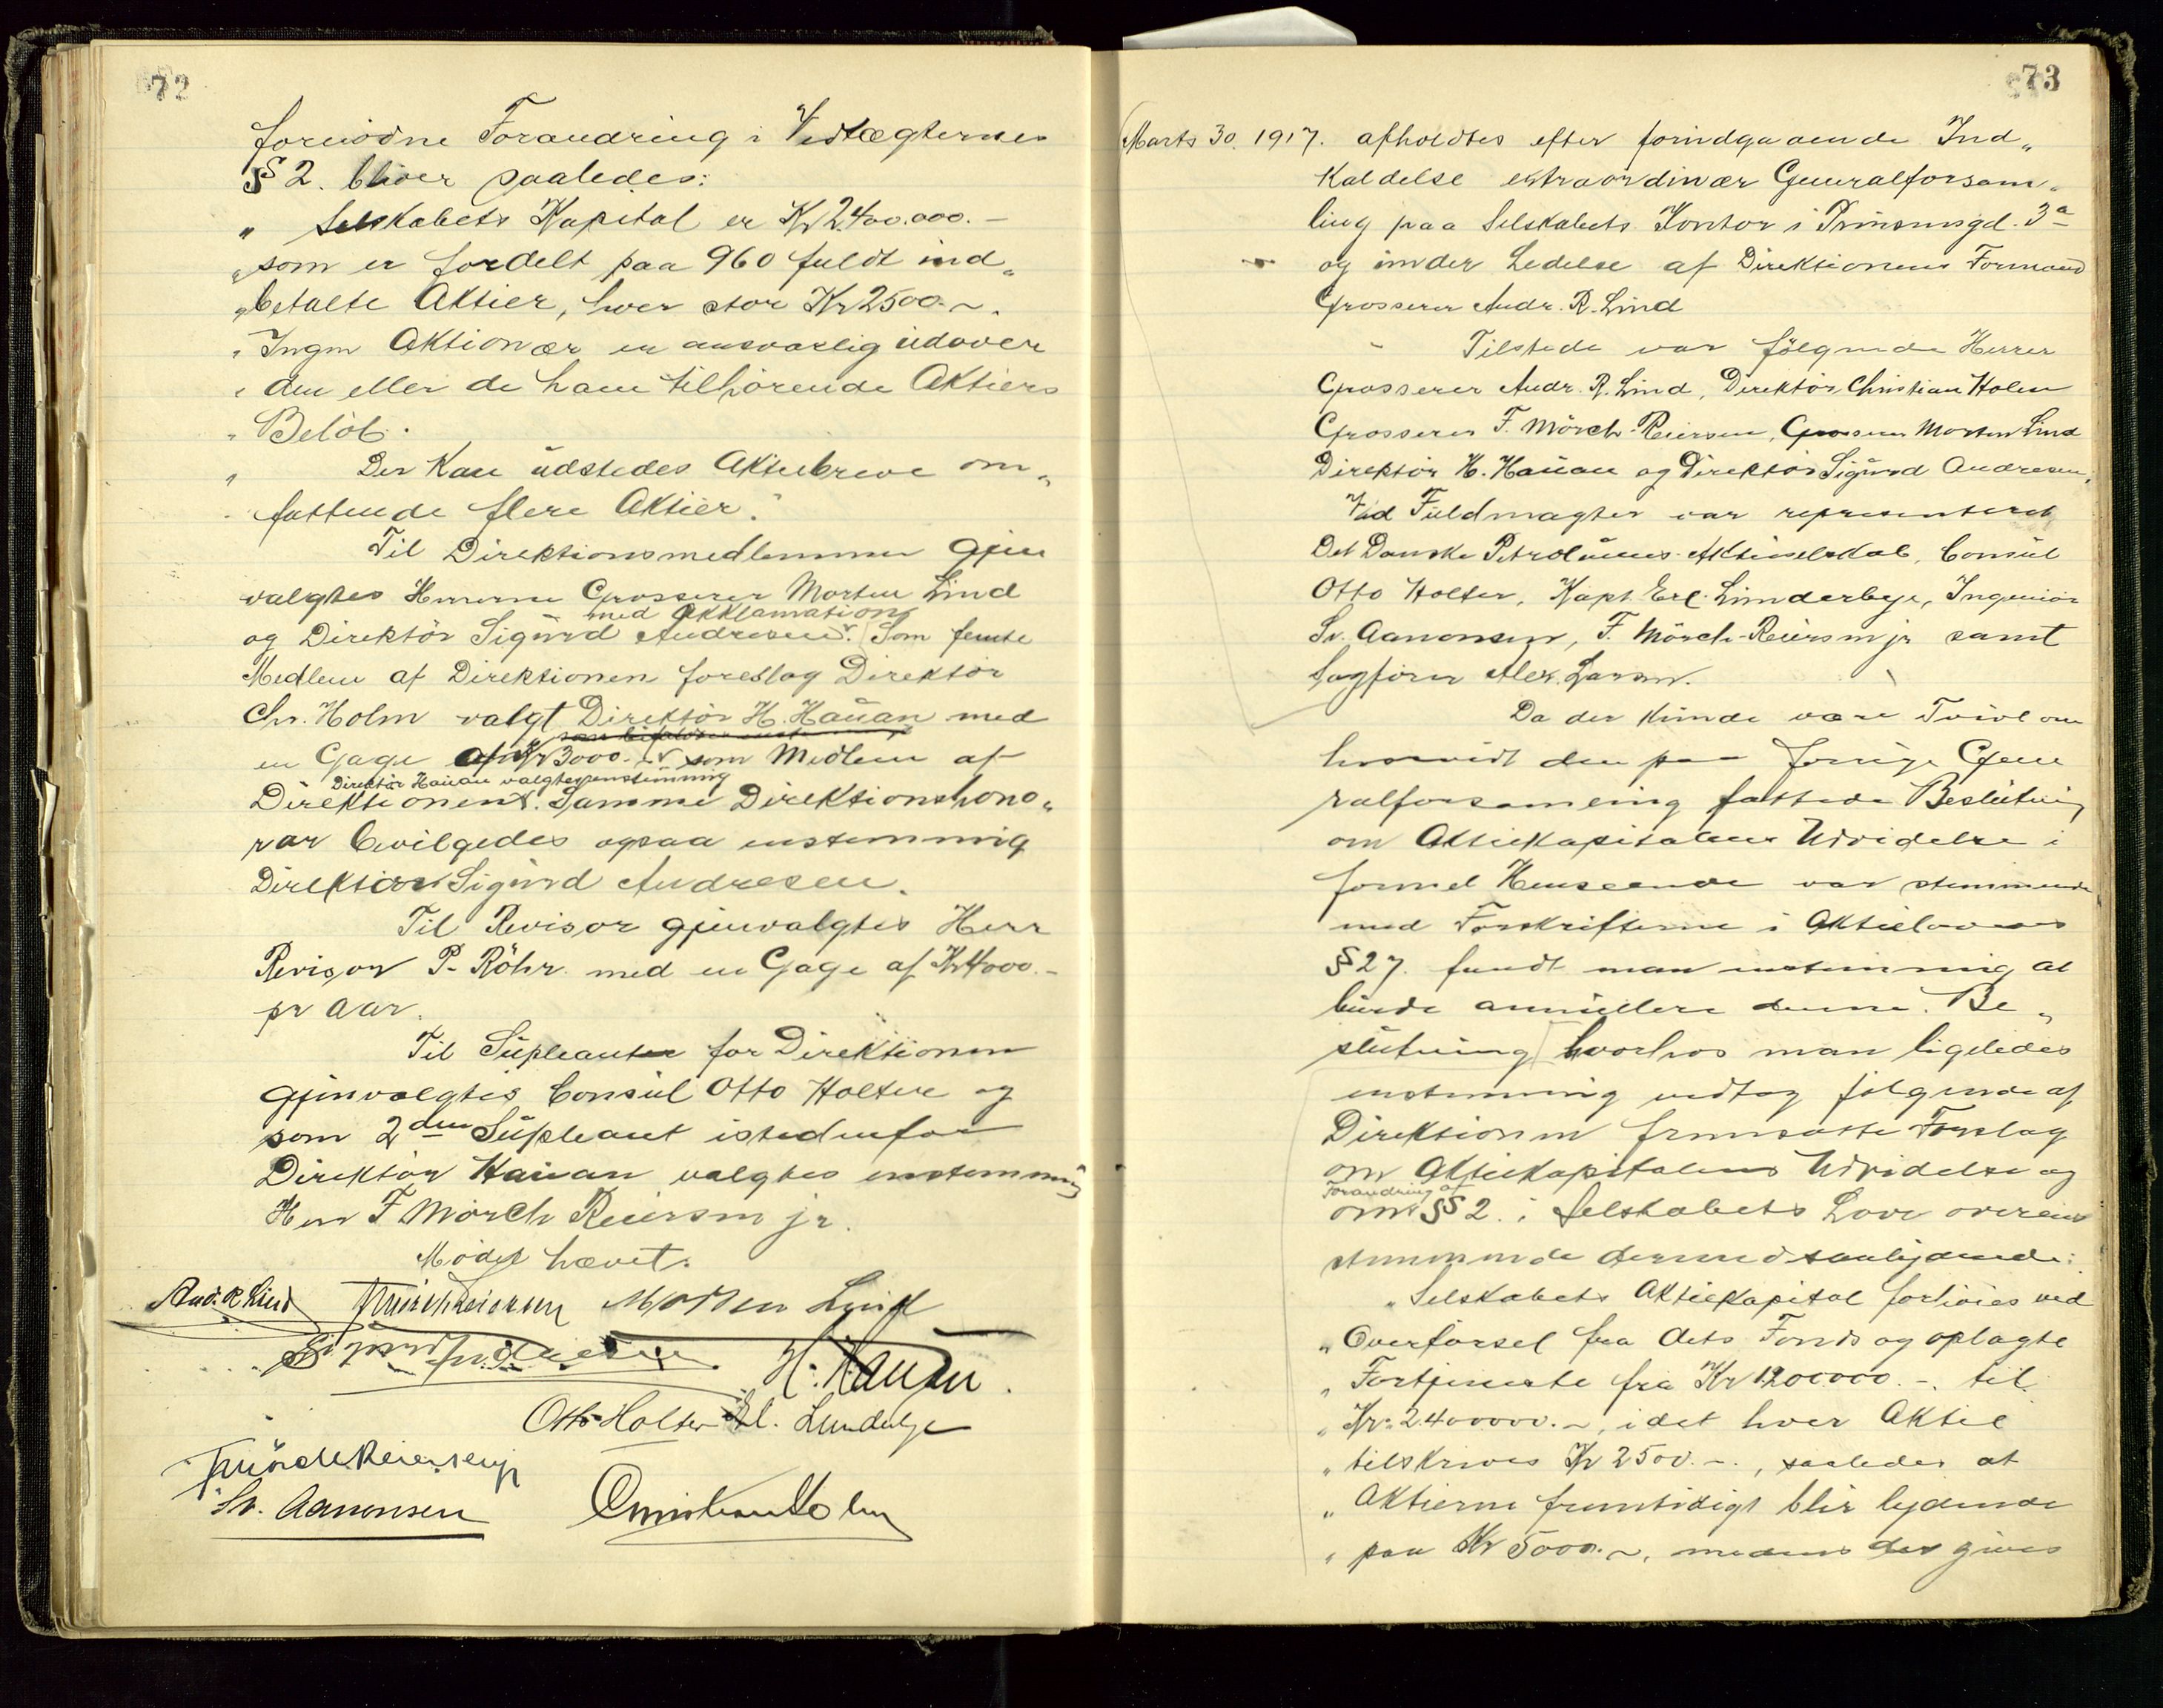 72
fornödne Forandring i Vedtægternes
§ 2. bliver saaledes:
" Selskabets Kapital er Kr 2.400.000.-
" som er fordelt paa 960 fuldt ind„
" betalte Aktier, hver stor Kr 2500.-.
" Ingen Aktionær er ansvarlig udover
" den eller de ham tilhörende Aktiers
" Belöb.
" Der kan udstedes Aktiebreve om„
" fattende flere Aktier."
Til Direktionsmedlemmer gjen
valgtes Herrerne Grosserer Morten Lind
med Akklamation
og Direktör Sigurd Andresen. Som femte
Medlem af Direktionen foreslog Direktör
Chr. Holm valgt Direktör H. Hauan med
en Gage af Kr 3000.- som Medlem af
Direktör Hauan valgtes enstemmig
Direktionen. Samme Direktionshono„
rar bevilgedes ogsaa enstemmig
Direktör Sigurd Andresen.
Til Revisor gjenvalgtes Herr
Revisor P. Röhr med en Gage af Kr 4000.-
pr Aar.
Til Supleanter for Direktionen
gjenvalgtes Consul Otto Holter og
som 2den Supleant istedenfor
Direktör Hauan valgtes enstemmig
Herr F. Mörch Reiersen jr.
Mödet hævet.
And. R. Lind F. Mörch Reiersen Morten Lind
Sigurd Andresen H. Hauan.
Otto Holter Erl. Lunderbye
F Mörch Reiersen jr
Sv. Aanonsen Christian Holm
73
Marts 30. 1917. afholdtes efter forudgaaende Ind„
kaldelse extraordinær Generalforsam„
ling paa Selskabets Kontor i Prinsensgd. 3a
og under Ledelse af Direktionens Formand
Grosserer Andr. R. Lind
Tilstede var fölgende Herrer
Grosserer Andr. R. Lind, Direktör Christian Holm
Grosserer F. Mörch-Reiersen, Grosserer Morten Lind
Direktör H. Hauan og Direktör Sigurd Andresen,
Ved Fuldmagter var representeret
Det Danske Petroleums-Aktieselskab, Consul
Otto Holter, Kapt. Erl. Lunderbye, Ingeniör
Sv. Aanonsen, F. Mörch-Reiersen jr samt
Sagförer Alex. Larsen.
Da der kunde være Tvivl om
hvorvidt den paa forrige Gene
ralforsamling fattede Beslutning
om Aktiekapitalens Udvidelse i
formel Henseende var stemmende
med Forskrifterne i Aktielovens
§ 27. fandt man enstemmig at
burde annullere denne Be„
slutning hvorhos man ligeledes
enstemmig vedtog fölgende af
Direktionen fremsatte Forslag
om Aktiekapitalens Udvidelse og
Forandring af
om § 2. i Selskabets Love overens
stemmende dermed saalydende:
" Selskabets Aktiekapital forhöies ved
" Overförsel fra dets Fonds og oplagte
" Fortjeneste fra Kr 1200000.-. til
" Kr. 2.400000.-, idet hver Aktie
" tilskrives Kr 2500.-., saaledes at
" Aktierne fremtidigt blir lydende
" paa Kr 5000.-, medens der gives